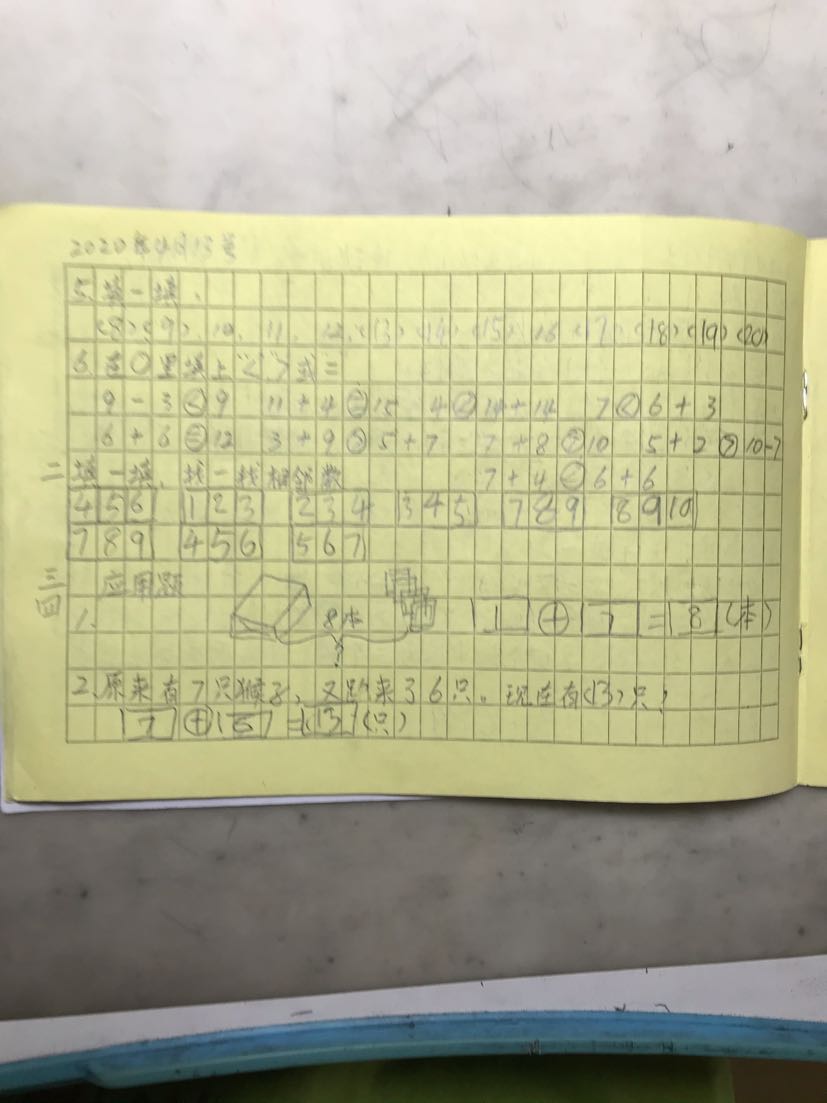 2020年4月13号
5、填一填、
(8)、(9)、10、11、12、(13)、(14)、(15)、16、(17)、(18)、(19)、(20)
6、在○里填上“<”“>”或=
9-3<9 11+4=15 4<14+14 7<6+3
6+6=12 3+9=5+7 7+8 10 5+2>10-7
二 填一填、找一找相邻数 7+4<6+6
4 5 6 1 2 3 2 3 4 3 4 5 7 8 9 8 9 10
7 8 9 4 5 6 5 6 7
三 应用题
四
1. 8本 1+7=8(本)
?
2、原来有7只猴子,又跑来了6只。现在有(13)只!
7+6=13(只)